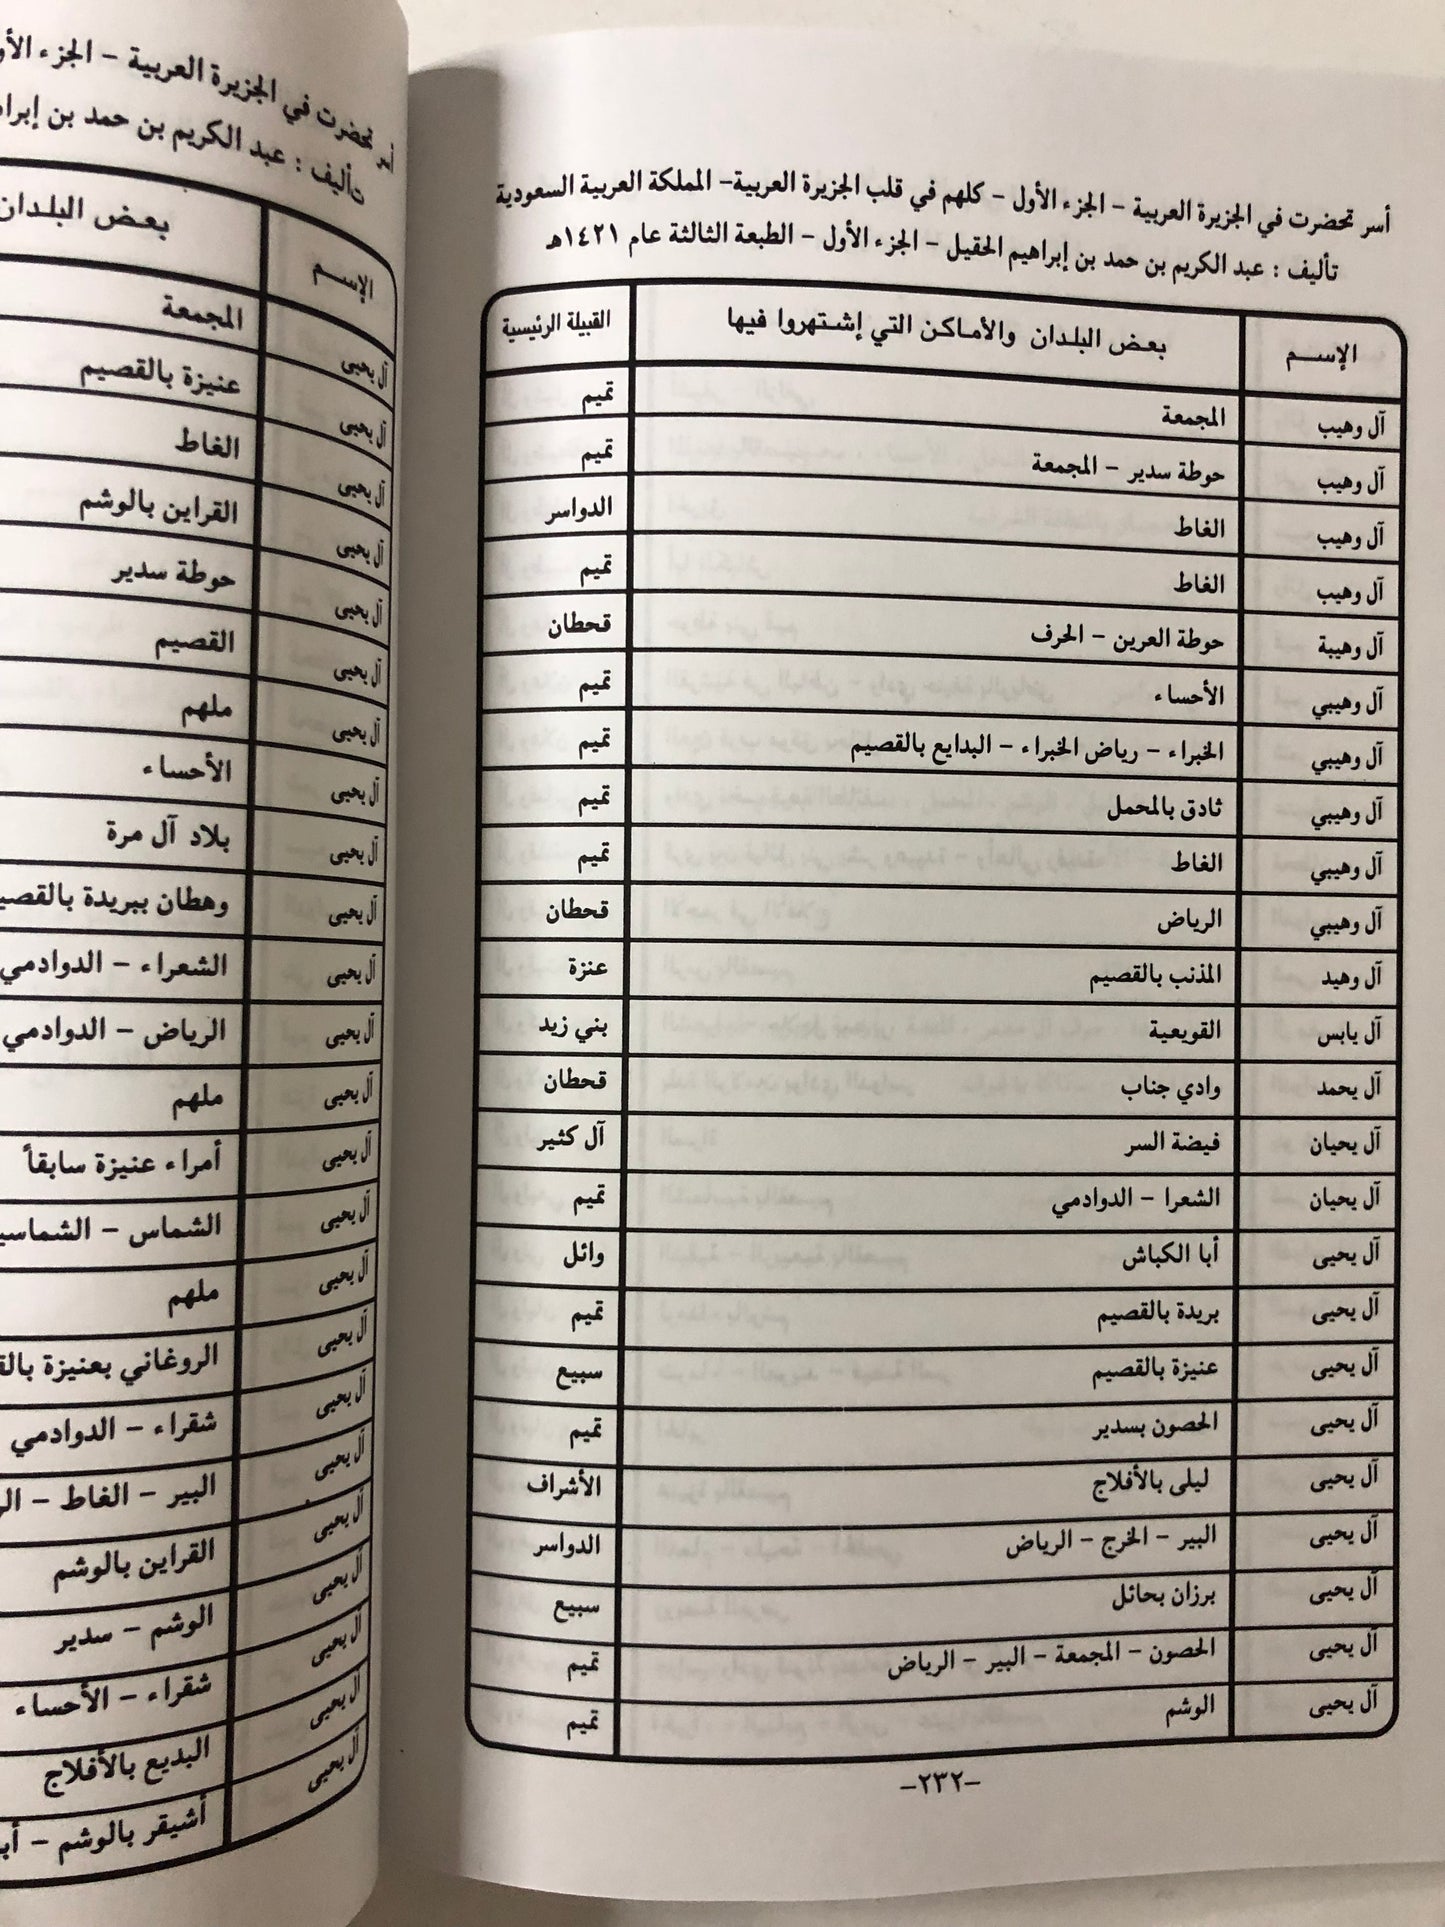 أسر تحضرت في الجزيرة العربية – الجزء الأول – كلهم في قلب الجزيرة العربية– المملكة العربية السعودية
تأليف : عبد الكريم بن حمد بن إبراهيم الحقيل – الجزء الأول – الطبعة الثالثة عام ١٤٢١هـ
الإســم بعض البلدان والأماكن التي إشتهروا فيها القبيلة الرئيسية
آل وهيب المجمعة تميم
آل وهيب حوطة سدير – المجمعة تميم
آل وهيب الغاط الدواسر
آل وهيب الغاط تميم
آل وهيبة حوطة العرين – الحرف قحطان
آل وهيبي الأحساء تميم
آل وهيبي الخبراء – رياض الخبراء – البدايع بالقصيم تميم
آل وهيبي ثادق بالمحمل تميم
آل وهيبي الغاط تميم
آل وهيبي الرياض قحطان
آل وهيد المذنب بالقصيم عنزة
آل يابس القويعية بني زيد
آل يحمد وادي جناب قحطان
آل يحيان فيضة السر آل كثير
آل يحيان الشعرا – الدوادمي تميم
آل يحيى أبا الكباش وائل
آل يحيى بريدة بالقصيم تميم
آل يحيى عنيزة بالقصيم سبيع
آل يحيى الحصون بسدير تميم
آل يحيى ليلى بالأفلاج الأشراف
آل يحيى البير – الخرج – الرياض الدواسر
آل يحيى برزان بحائل سبيع
آل يحيى الحصون – المجمعة – البير – الرياض تميم
آل يحيى الوشم تميم
–٢٣٢–
أسر تحضرت في الجزيرة العربية – الجزء
تأليف : عبد الكريم بن حمد بن
الإســم بعض البلدان
آل يحيى المجمعة
آل يحيى عنيزة بالقصيم
آل يحيى الغاط
آل يحيى القراين بالوشم
آل يحيى حوطة سدير
آل يحيى القصيم
آل يحيى ملهم
آل يحيى الأحساء
آل يحيى بلاد آل مرة
آل يحيى وهطان ببريدة
آل يحيى الشعراء – الدوادمي
آل يحيى الرياض – الدوادمي
آل يحيى ملهم
آل يحيى أمراء عنيزة سابقاً
آل يحيى الشماس –
آل يحيى ملهم
آل يحيى الروغاني بعنيزة
آل يحيى شقراء – الدوادمي
آل يحيى البير – الغاط –
آل يحيى القراين بالوشم
آل يحيى الوشم – سدير
آل يحيى شقراء – الأحساء
آل يحيى البديع بالأفلاج
أشيقر بالوشم –